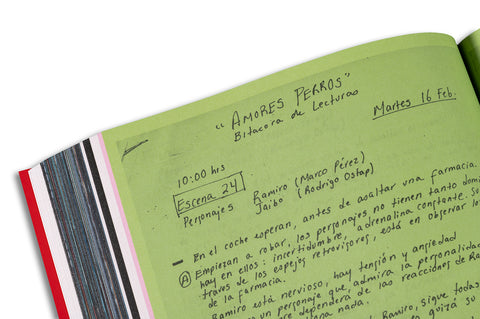 "AMORES PERROS"
Bitacora de Lecturas
Martes 16 Feb.
10:00 hrs
Escena 24
Personajes Ramiro (Marco Pérez)
Jaibo (Rodrigo Ostap)
— En el coche esperan, antes de asaltar una farmacia.
(A) Empiezan a robar, los personajes no tienen tanto
hay en ellos: incertidumbre, adrenalina constante.
traves de los espejos retrovisores, está en observar
de la farmacia.
Ramiro está nervioso, hay tensión y ansiedad
un personaje que, admira la personalidad
dependera de las reacciones de
nada.
Ramiro, sigue todas
quizá su